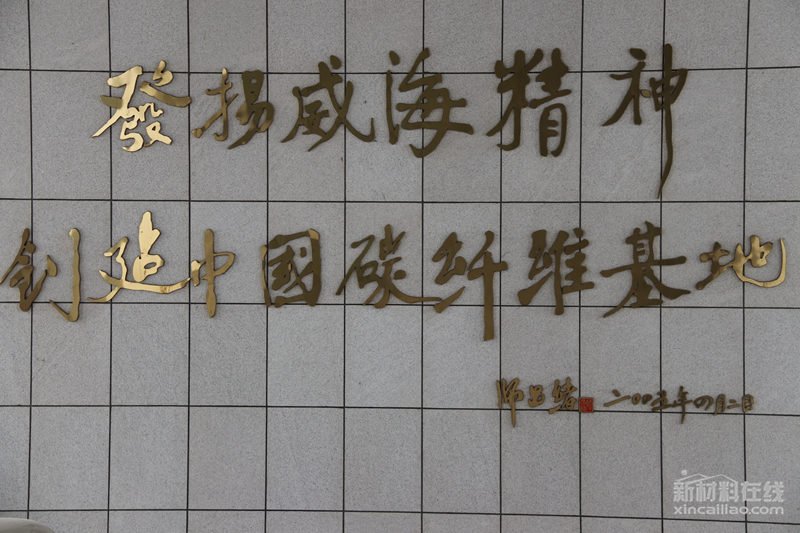 發揚威海精神
创建中國碳纤维基地
师昌绪 二〇〇五年四月二日
新材料在线
xincailiao.com